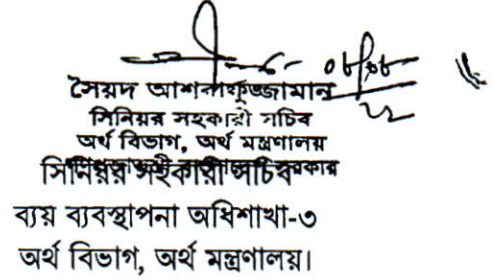 ০৮/০৮
২২
সৈয়দ আশরাফুজ্জামান
সিনিয়র সহকারী সচিব
অর্থ বিভাগ, অর্থ মন্ত্রণালয়
সিনিয়র সহকারী সচিব
ব্যয় ব্যবস্থাপনা অধিশাখা-৩
অর্থ বিভাগ, অর্থ মন্ত্রণালয়।